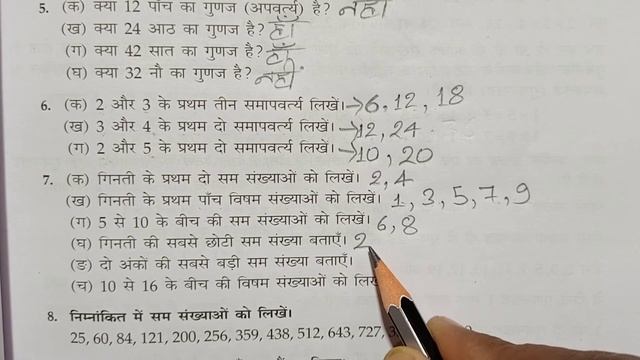 5. (क) क्या 12 पाँच का गुणज (अपवर्त्य) है? नहीं
(ख) क्या 24 आठ का गुणज है? हाँ
(ग) क्या 42 सात का गुणज है? हाँ
(घ) क्या 32 नौ का गुणज है? नहीं
6. (क) 2 और 3 के प्रथम तीन समापवर्त्य लिखें। → 6, 12, 18
(ख) 3 और 4 के प्रथम दो समापवर्त्य लिखें। → 12, 24
(ग) 2 और 5 के प्रथम दो समापवर्त्य लिखें। → 10, 20
7. (क) गिनती के प्रथम दो सम संख्याओं को लिखें। 2, 4
(ख) गिनती के प्रथम पाँच विषम संख्याओं को लिखें। 1, 3, 5, 7, 9
(ग) 5 से 10 के बीच की सम संख्याओं को लिखें। 6, 8
(घ) गिनती की सबसे छोटी सम संख्या बताएँ। 2
(ङ) दो अंकों की सबसे बड़ी सम संख्या बताएँ।
(च) 10 से 16 के बीच की विषम संख्याओं को
8. निम्नांकित में सम संख्याओं को लिखें।
25, 60, 84, 121, 200, 256, 359, 438, 512, 643, 727,